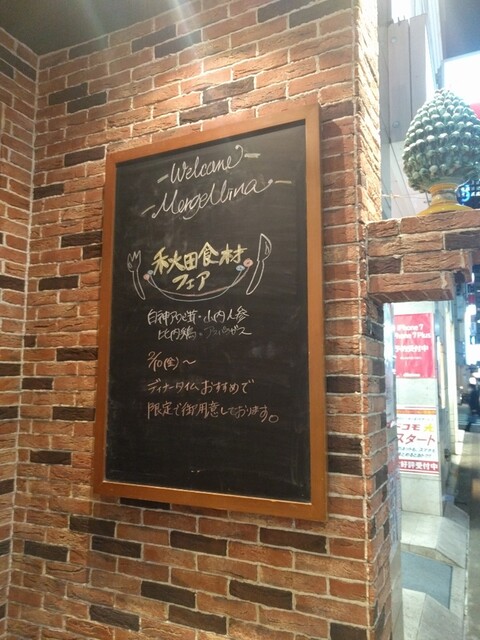 Welcome
Mergellina
秋田食材
フェア
白神アワビ茸・山内人参
比内鶏・
2/10(金)〜
ディナータイムおすすめで
限定で御用意しております。
iPhone 7
iPhone 7 Plus
予約受付中
スタート
好評受付中